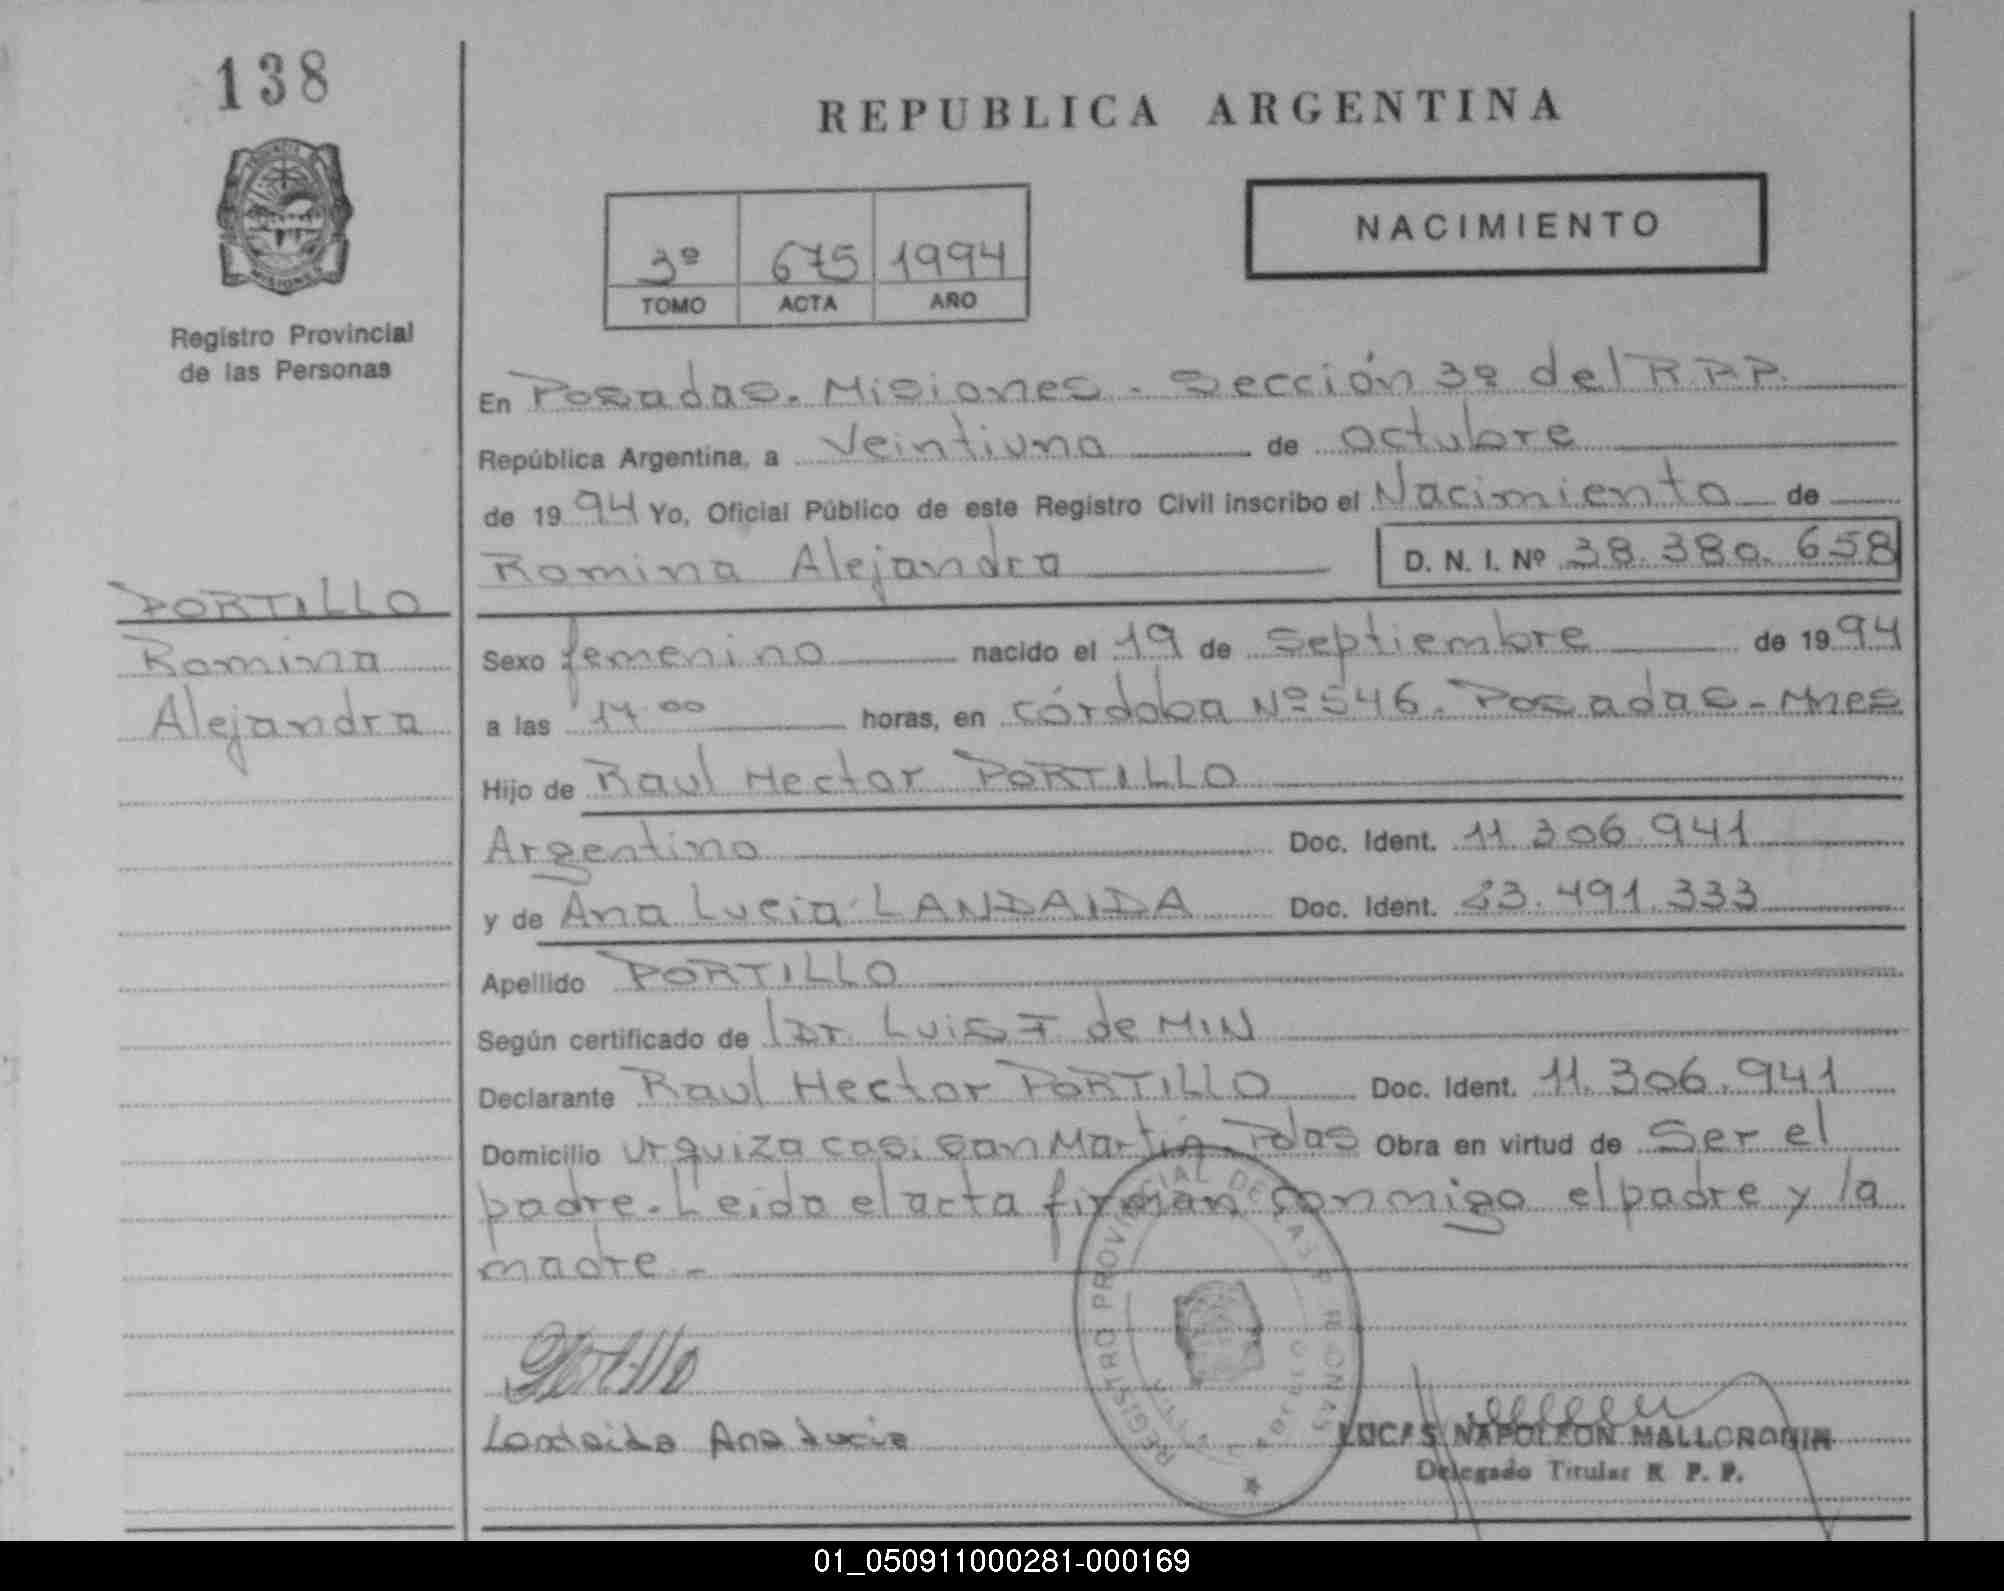 138
REPUBLICA ARGENTINA
NACIMIENTO
3º 675 1994
TOMO ACTA AÑO
Registro Provincial
de las Personas
En Posadas. Misiones - Sección 3º del R.P.P.
República Argentina, a Veintiuno de octubre
de 1994 Yo, Oficial Público de este Registro Civil inscribo el Nacimiento de
Romina Alejandra D. N. I. Nº 38.380.658
PORTILLO
Romina
Alejandra
Sexo femenino nacido el 19 de septiembre de 1994
a las horas, en córdoba Nº 546. Posadas - Mnes
Hijo de Raul Hector PORTILLO
Argentino Doc. Ident. 11.306.941
y de Ana Lucia LANDAIDA Doc. Ident. 23.491.333
Apellido PORTILLO
Según certificado de Dr. Luis F de MIN
Declarante Raul Hector PORTILLO Doc. Ident. 11.306.941
Domicilio Urquiza casi San Martin Pdas Obra en virtud de Ser el
padre. Leida el acta firman conmigo el padre y la
madre -
REGISTRO PROVINCIAL DE LAS PERSONAS
Portillo
Landaida Ana Lucia
LUCAS NAPOLEON
Delegado Titular R. P. P.
01_050911000281-000169